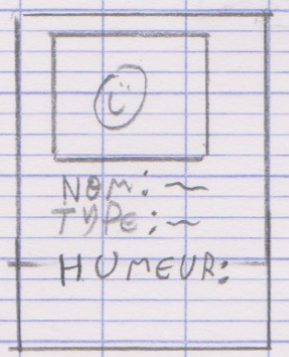 NOM: ~
TYPE: ~
HUMEUR: